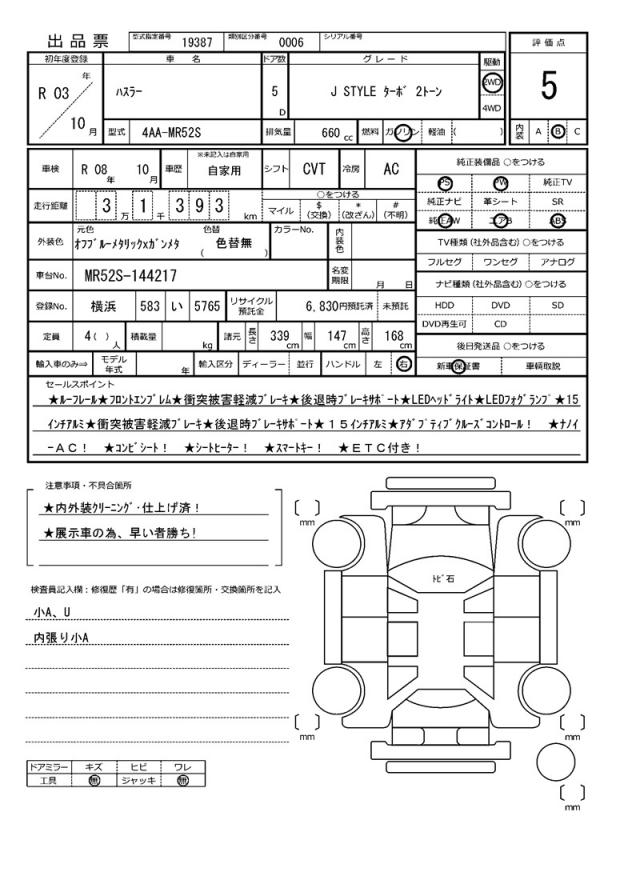 出品票 型式指定番号 19387 類別区分番号 0006 シリアル番号
初年度登録 車名 ドア数 グレード 駆動 評価点
R 03 年 10 月 ハスラー 5 D J STYLE ターボ 2トーン 2WD 4WD 5
型式 4AA-MR52S 排気量 660 cc 燃料 ガソリン 軽油 ( ) 内装 A B C
車検 R 08 年 10 月 車歴 ※未記入は自家用 自家用 シフト CVT 冷房 AC 純正装備品 ○をつける
PS PW 純正TV
走行距離 3 万 1 千 3 9 3 km ○をつける マイル $ (交換) * (改ざん) # (不明) 純正ナビ 革シート SR
純正AW エアB ABS
外装色 元色 オフブルーメタリックXガンメタ 色替 ( 色替無 ) カラーNo. 内装色 TV種類 (社外品含む) ○をつける
フルセグ ワンセグ アナログ
車台No. MR52S-144217 名変期限 月 日 ナビ種類 (社外品含む) ○をつける
登録No. 横浜 583 い 5765 リサイクル預託金 6,830円預託済 未預託 HDD DVD SD
DVD再生可 CD
定員 4 ( ) 人 積載量 kg 諸元 長さ 339 cm 幅 147 cm 高さ 168 cm 後日発送品 ○をつける
輸入車のみ⇒ モデル年式 年 輸入区分 ディーラー 並行 ハンドル 左 右 新車保証書 車輌取説
セールスポイント
★ルーフレール★フロントエンブレム★衝突被害軽減ブレーキ★後退時ブレーキサポート★LEDヘッドライト★LEDフォグランプ★15
インチアルミ★衝突被害軽減ブレーキ★後退時ブレーキサポート★15インチアルミ★アダプティブクルーズコントロール! ★ナノイ
-AC! ★コンビシート! ★シートヒーター! ★スマートキー! ★ETC付き!
注意事項・不具合箇所
★内外装クリーニング・仕上げ済!
★展示車の為、早い者勝ち!
検査員記入欄：修復歴「有」の場合は修復箇所・交換箇所を記入
小A、U
内張り小A
ドアミラー キズ ヒビ ワレ
工具 無 ジャッキ 無
[ ] mm
[ ] mm
トビ石
[ ] mm
[ ] mm
[ ] mm